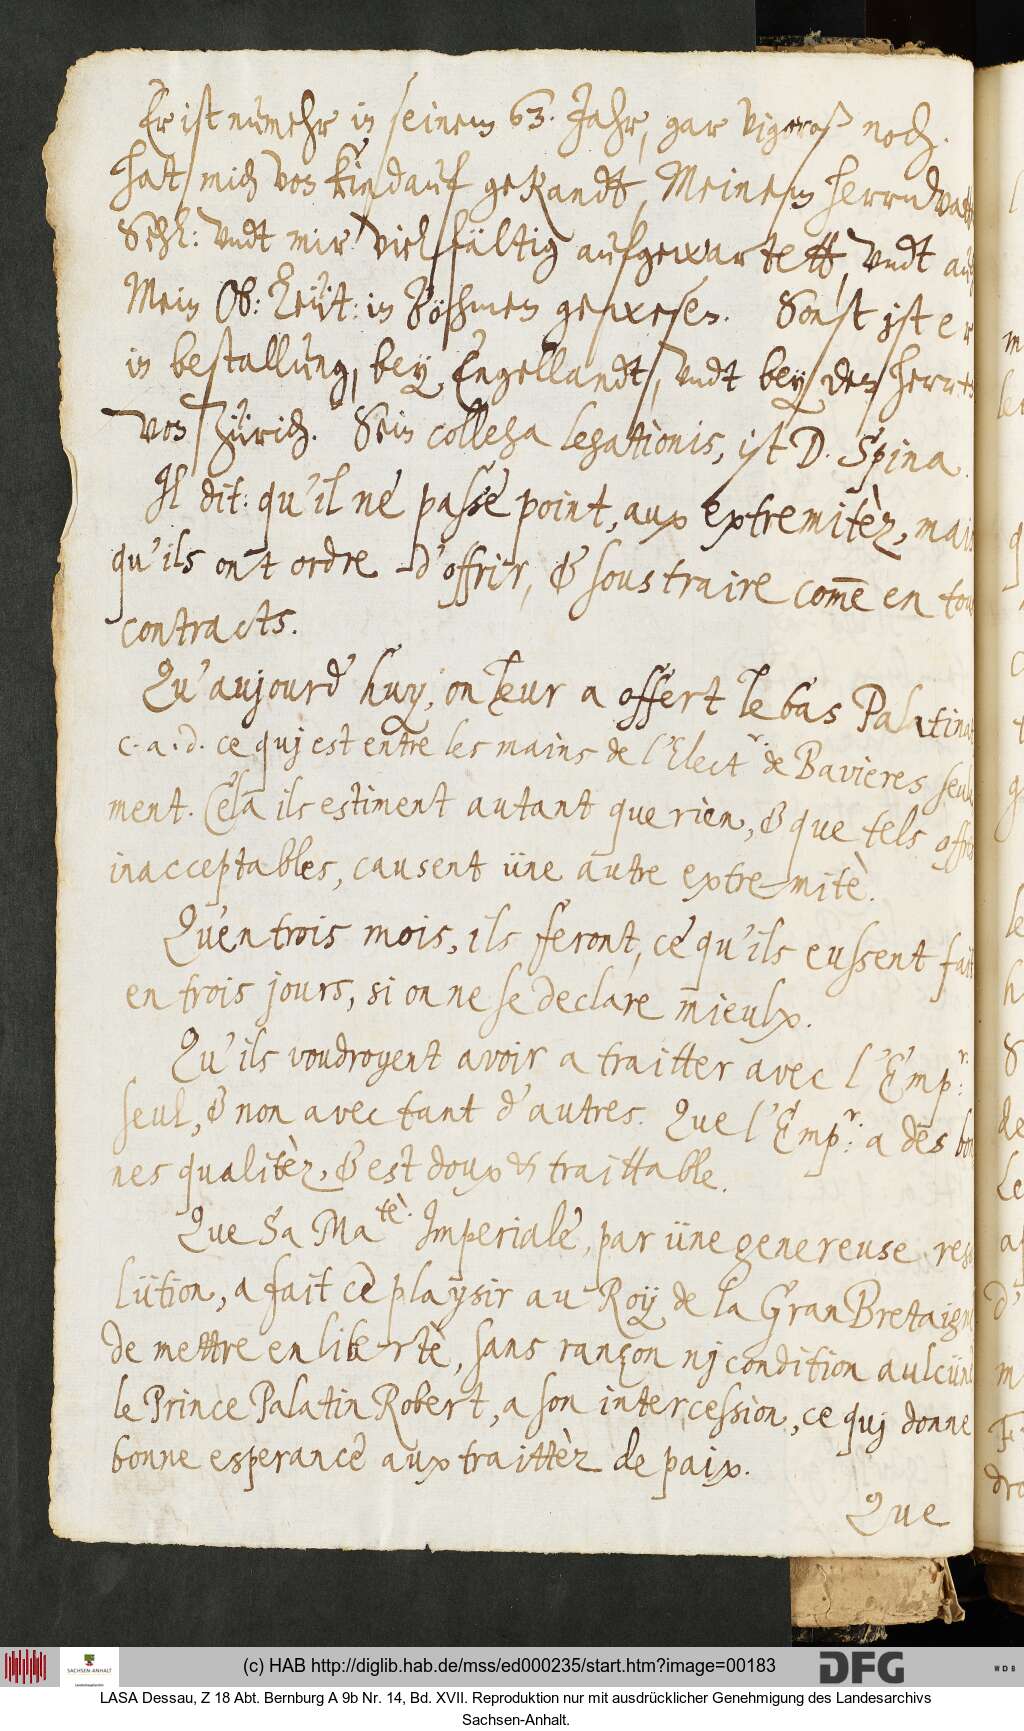 Er ist numehr in seinem 63. Jahr, gar vigeroß noch.
hat mich von kindauf gekandtt, Meinem herrnvatt
Sehl: vndt mir vielfältig aufgewartett, vndt auch
Mein Ob: Leüt: in Böhmen gewesen. Sonst jst er
in bestallung, bey Engellandt, vndt bey den herren
von Zürich. Sein collega legationis, ist D. Spina.
Il dit: qu'il ne passe point, aux extremitèz, mais
qu'ils ont ordre d'offrir, & soustraire com̄e en tou
contracts.
Qu'aujourd'huy, on leur a offert le bas Palatina
c. a. d. ce quj est entre les mains de l'Elect.r de Bavieres seule
ment. Cela ils estiment autant que rien, & que tels offres
inacceptables, causent üne autre extremitè.
Qu'en trois mois, ils feront, ce qu'ils eussent fait
en trois jours, si on ne se declare mieulx.
Qu'ils voudroyent avoir a traitter avec l'Emp.r:
seul, & non avec tant d'autres. Que l'Emp.r: a des bon
nes qualitèz, & est doux & traittable.
Que Sa Ma.tè Imperiale, par üne genereuse reso
lütion, a fait ce playsir au Roy de la Gran Bretaigne
de mettre en libertè, sans rançon nj condition aulcüne
le Prince Palatin Robert, a son intercession, ce quj donne
bonne esperance aux traittèz de paix.
Que
(c) HAB http://diglib.hab.de/mss/ed000235/start.htm?image=00183
SACHSEN-ANHALT
DFG
WDB
LASA Dessau, Z 18 Abt. Bernburg A 9b Nr. 14, Bd. XVII. Reproduktion nur mit ausdrücklicher Genehmigung des Landesarchivs
Sachsen-Anhalt.